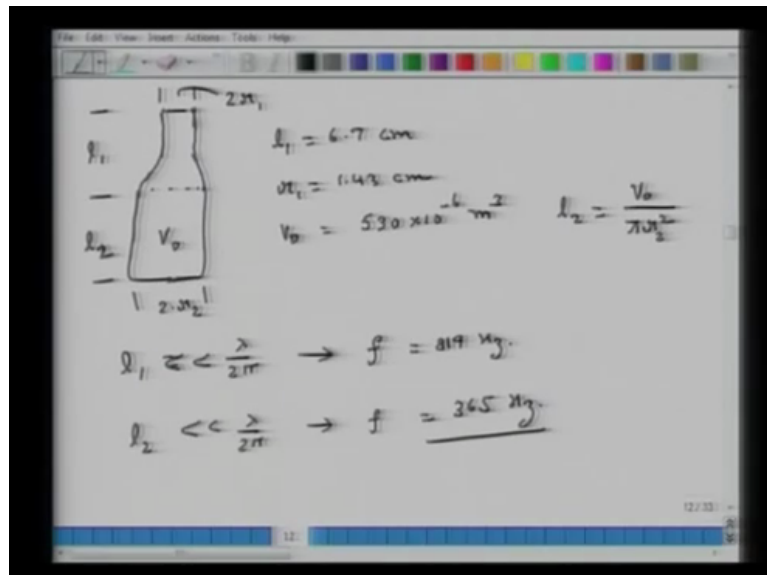 File Edit View Insert Actions Tools Help
2r₁
l₁
l₁ = 6.7 cm
r₁ = 1.43 cm
V₀ = 530 × 10⁻⁶ m³
l₂ = V₀ / πr₂²
l₂
V₀
2r₂
l₁ << λ/2π → f = 819 Hz.
l₂ << λ/2π → f = 365 Hz.
12/33
12